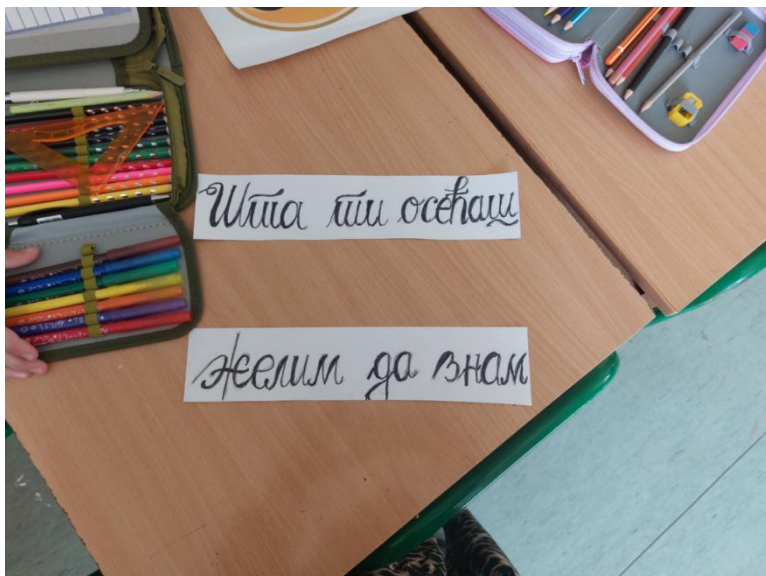 Шта ти осећаш
Желим да знам